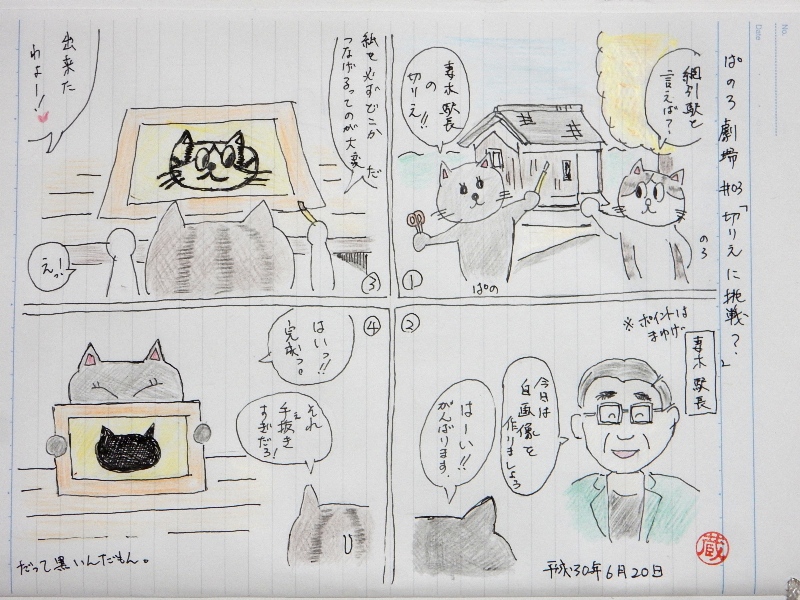 ぱのろ劇場 #03 「切りえに挑戦？」
①
網引駅と
言えば？
妻木駅長
の
切りえ!!
のろ
ぱの
②
※ポイントは
まゆげ
妻木 駅長
今日は
自画像を
作りましょう
はーい!!
がんばります。
③
私を必ずどこか
つなげるってのが大変だ
出来た
わよー!
えっ!
④
はいっ!!
完成っ。
それ
手抜き
すぎだろ!
だって黒いんだもん。
平成30年6月20日
蔵
No.
Date